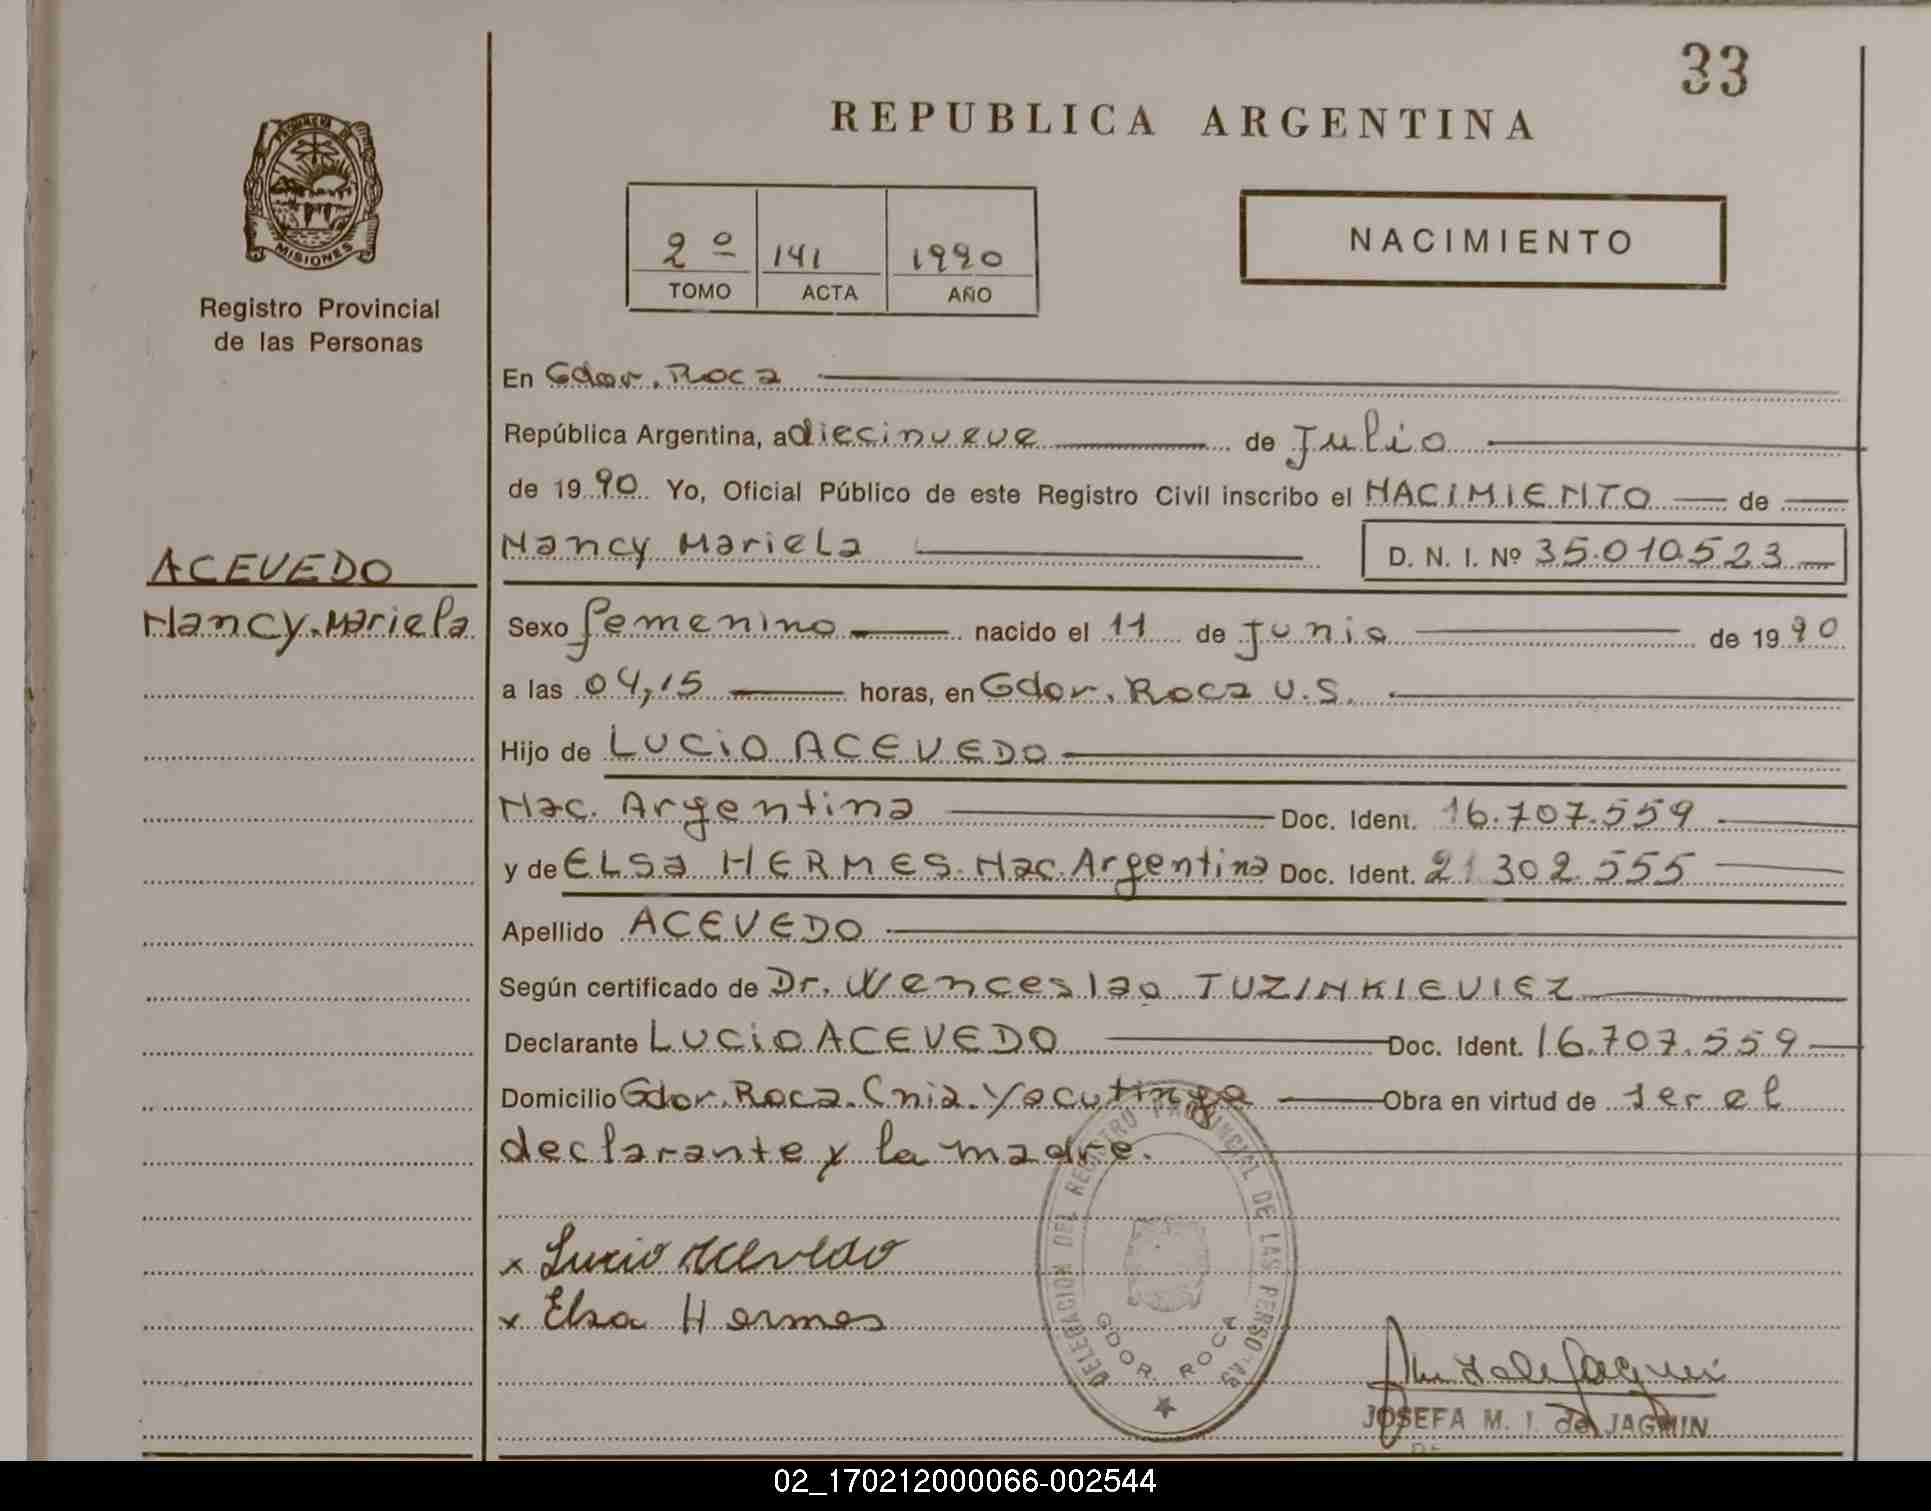 33
REPUBLICA ARGENTINA
PROVINCIA DE
MISIONES
Registro Provincial
de las Personas
2º 141 1990
TOMO ACTA AÑO
NACIMIENTO
En Gdor. Roca
República Argentina, a diecinueve de Julio
de 1990 Yo, Oficial Público de este Registro Civil inscribo el NACIMIENTO de
Nancy Mariela D. N. I. Nº 35.010.523
ACEVEDO
Nancy Mariela
Sexo femenino nacido el 11 de junio de 1990
a las 04,15 horas, en Gdor. Roca U.S.
Hijo de LUCIO ACEVEDO
Nac. Argentina Doc. Ident. 16.707.559
y de ELSA HERMES. Nac. Argentina Doc. Ident. 21.302.555
Apellido ACEVEDO
Según certificado de Dr. Wenceslao TUZINKIEVIEZ
Declarante LUCIO ACEVEDO Doc. Ident. 16.707.559
Domicilio Gdor. Roca. Cnia. Yacutinga Obra en virtud de ser el
declarante y la madre.
x Lucio Acevedo
x Elsa Hermes
DELEGACION DEL REGISTRO PROVINCIAL DE LAS PERSONAS
GDOR. ROCA
JOSEFA M. I. de JAGMIN
02_170212000066-002544